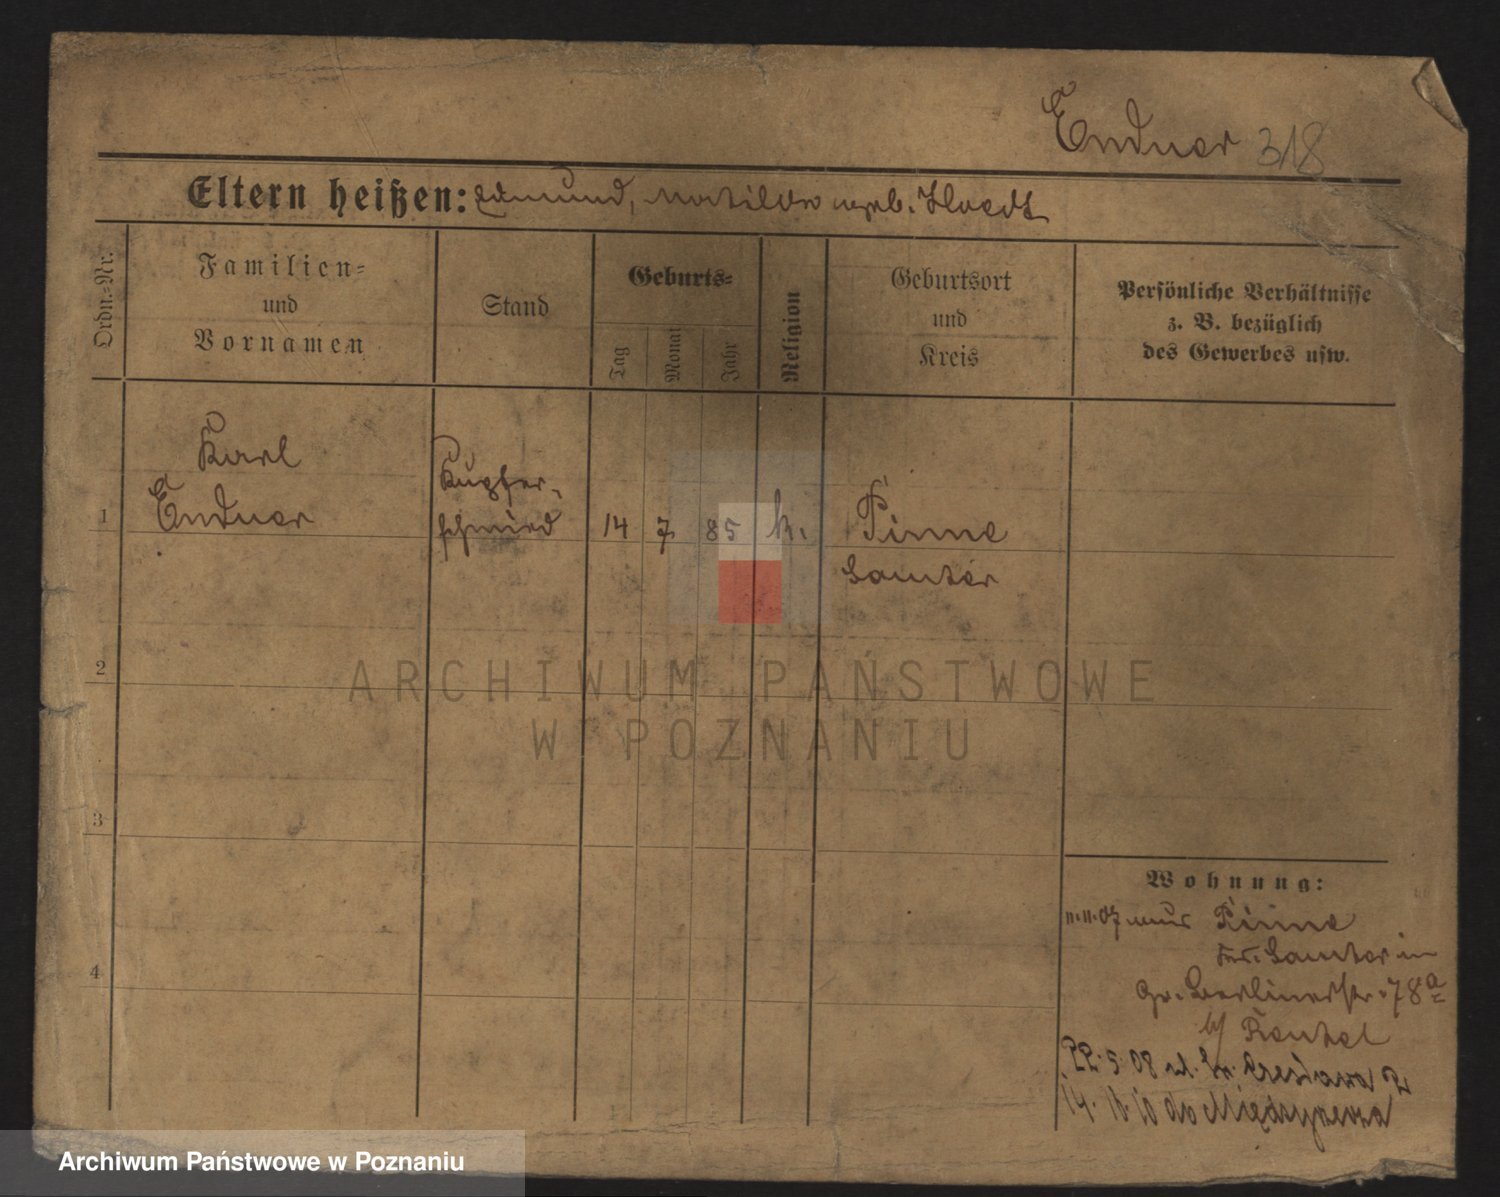 Endner 318
Eltern heißen: Edmund, Matilda geb. Haedt
Ordn.-Nr.
Familien-
und
Vornamen
Stand
Geburts-
Tag
Monat
Jahr
Religion
Geburtsort
und
Kreis
Persönliche Verhältnisse
z. B. bezüglich
des Gewerbes usw.
1
Karl
Endner
Kupfer-
schmied
14 7 85 k.
Pinne
Samter
2
3
4
Wohnung:
11.11.07 aus Pinne
Krs. Samter in
Gr. Berlinerstr. 78a
b/
22.5.08
14. 10 do
ARCHIWUM PAŃSTWOWE
W POZNANIU
Archiwum Państwowe w Poznaniu